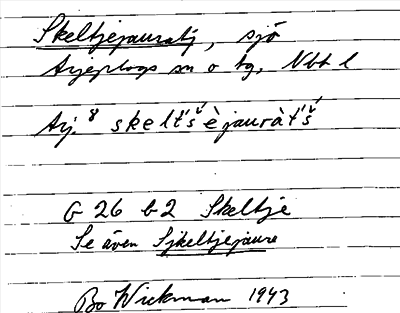 Skeltjejauratj, sjö
Arjeplogs sn o tg, Nbt l
Arj. 8 skelt́š́èjauràt́š́
G 26 b2 Skeltje
Se även Sjkeltjejaure
Bo Wickman 1943